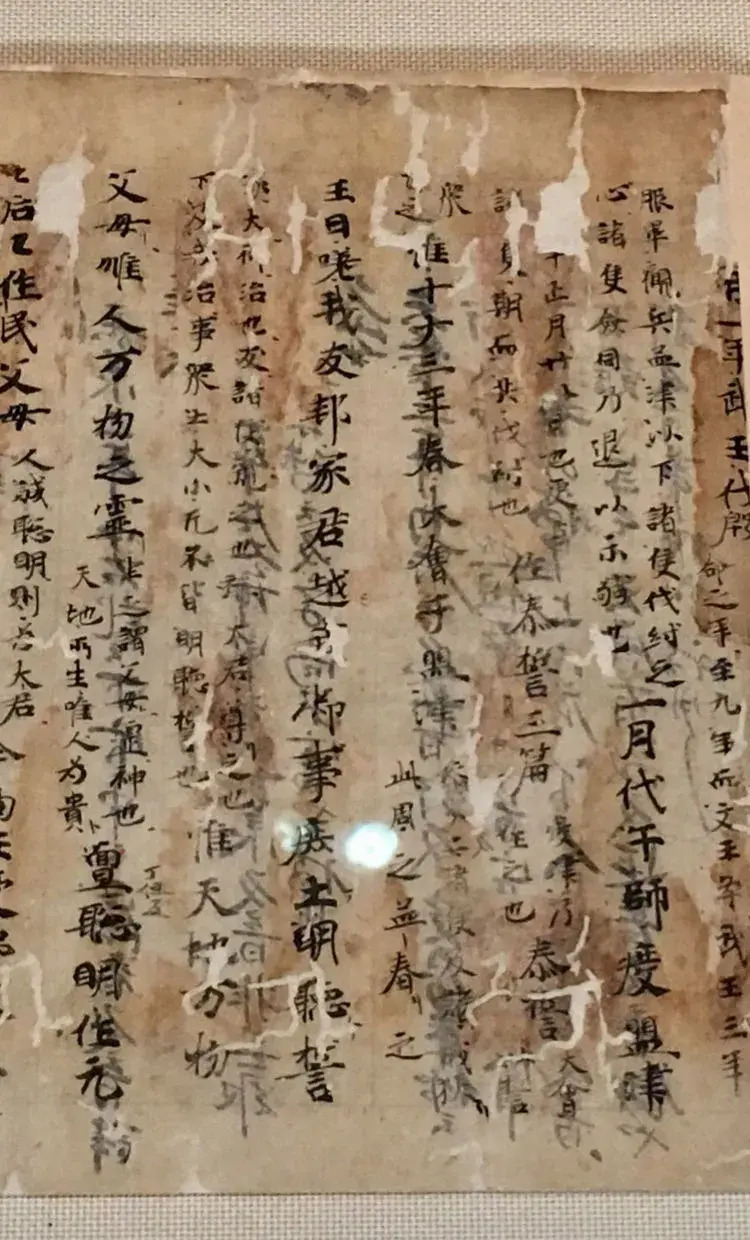 一年武王伐殷
命之年至九年而文王卒武王三年
服畢觀兵孟津以下諸侯伐紂之
心諸侯僉同乃退以示弱也
一月戊午師渡盟津
十正月廿八日也更与
諸侯期而共伐紂也
作泰誓三篇
渡津乃
作之也
泰誓
大會以
誓
衆
之
惟十ナ三年春大會于盟津
此周之孟春之
王曰嗟我友邦冢君越我御事庶士明聽誓
冢大御治也友諸侯親之也称大君尊之也
下及我治事衆士大小凡不皆明聽誓也
惟天地万物
父母惟人万物之靈
生之謂父母靈神也
天地所生唯人為貴
亶聰明作元
后元后作民父母
人誠聡明則為大君
今商王受